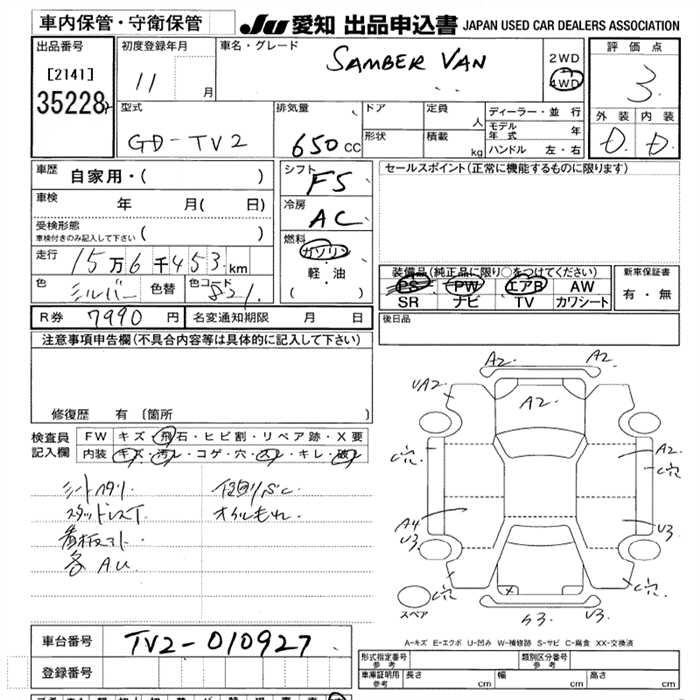 車内保管・守衛保管
JU 愛知 出品申込書 JAPAN USED CAR DEALERS ASSOCIATION
出品番号
[2141]
35228
初度登録年月
11 月
車名・グレード
SAMBER VAN
2WD
4WD
評価点
3
外装 内装
D. D.
型式
GD-TV2
排気量
650 CC
ドア
形状
定員 人
積載 kg
ディーラー・並行
モデル年式 年
ハンドル 左・右
車歴 自家用・( )
車検 年 月( 日)
受検形態
車検付きのみ記入して下さい ( )
走行 15万6千453km
色 シルバー 色替 色コード 521
シフト F5
冷房 AC
燃料
ガソリン
軽・油
( )
セールスポイント(正常に機能するものに限ります)
装備品(純正品に限り○をつけてください)
PS PW エアB AW
SR ナビ TV カワシート
新車保証書
有・無
R券 7990 円 名変通知期限 月 日
後日品
注意事項申告欄(不具合内容等は具体的に記入して下さい)
修復歴 有 〔箇所 〕
検査員記入欄
FW キズ・飛石・ヒビ割・リペア跡・X要
内装 キズ・汚レ・コゲ・穴・スレ・キレ・破レ
シートヘタリ
スタッドレスT
看板コト
各AU
オイルもれ
A2. A2.
UA2.
A2.
A2.
A4
U3.
U3.
S3. U3.
スペア
A-キズ E-エクボ U-凹み W-補修跡 S-サビ C-腐食 XX-交換済
車台番号 TV2-010927
登録番号
形式指定番号 参考
類別区分番号 参考
車庫証明用 参考 長さ cm 幅 cm 高さ cm